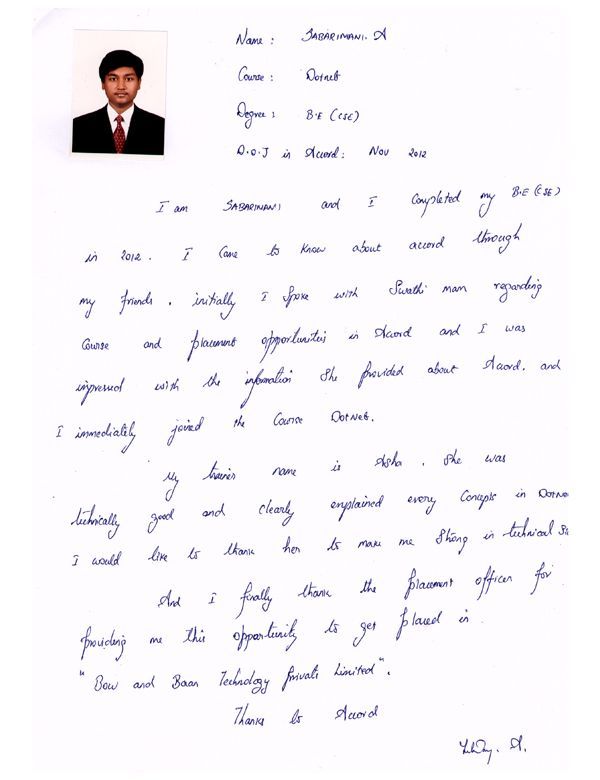 Name : SABARIMANI. A
Course : Dotnet
Degree : B.E (CSE)
D.O.J in Accord : Nov 2012
I am SABARIMANI and I Completed my B.E (CSE)
in 2012. I Came to Know about accord through
my friends. initially I Spoke with Swathi mam regarding
Course and placement opportunities in Accord and I was
impressed with the information She Provided about Accord. and
I immediately joined the Course DotNet.
My trainer name is Asha. She was
technically good and clearly explained every Concepts in Dotne
I would like to thank her to make me Strong in technical
And I finally thank the placement officer for
providing me this opportunity to get placed in
"Bow and Baan Technology Private Limited".
Thanks to Accord